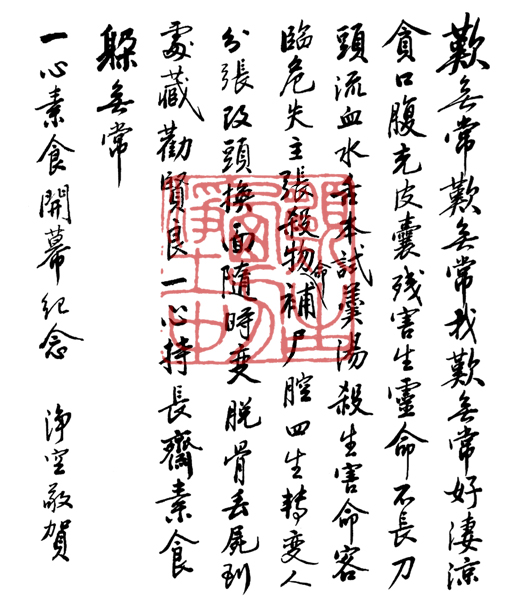 歎無常歎無常我歎無常好淒涼
貪口腹充皮囊残害生靈命不長刀
頭流血水舌本試羹湯殺生害命容
臨危失主張殺物命補尸腔四生轉變人
分張改頭換面隨時变脫骨丟屍到
處藏勸賢良一心持長齋素食
躲無常
一心素食開幕紀念 淨空敬賀
願生西方淨土中